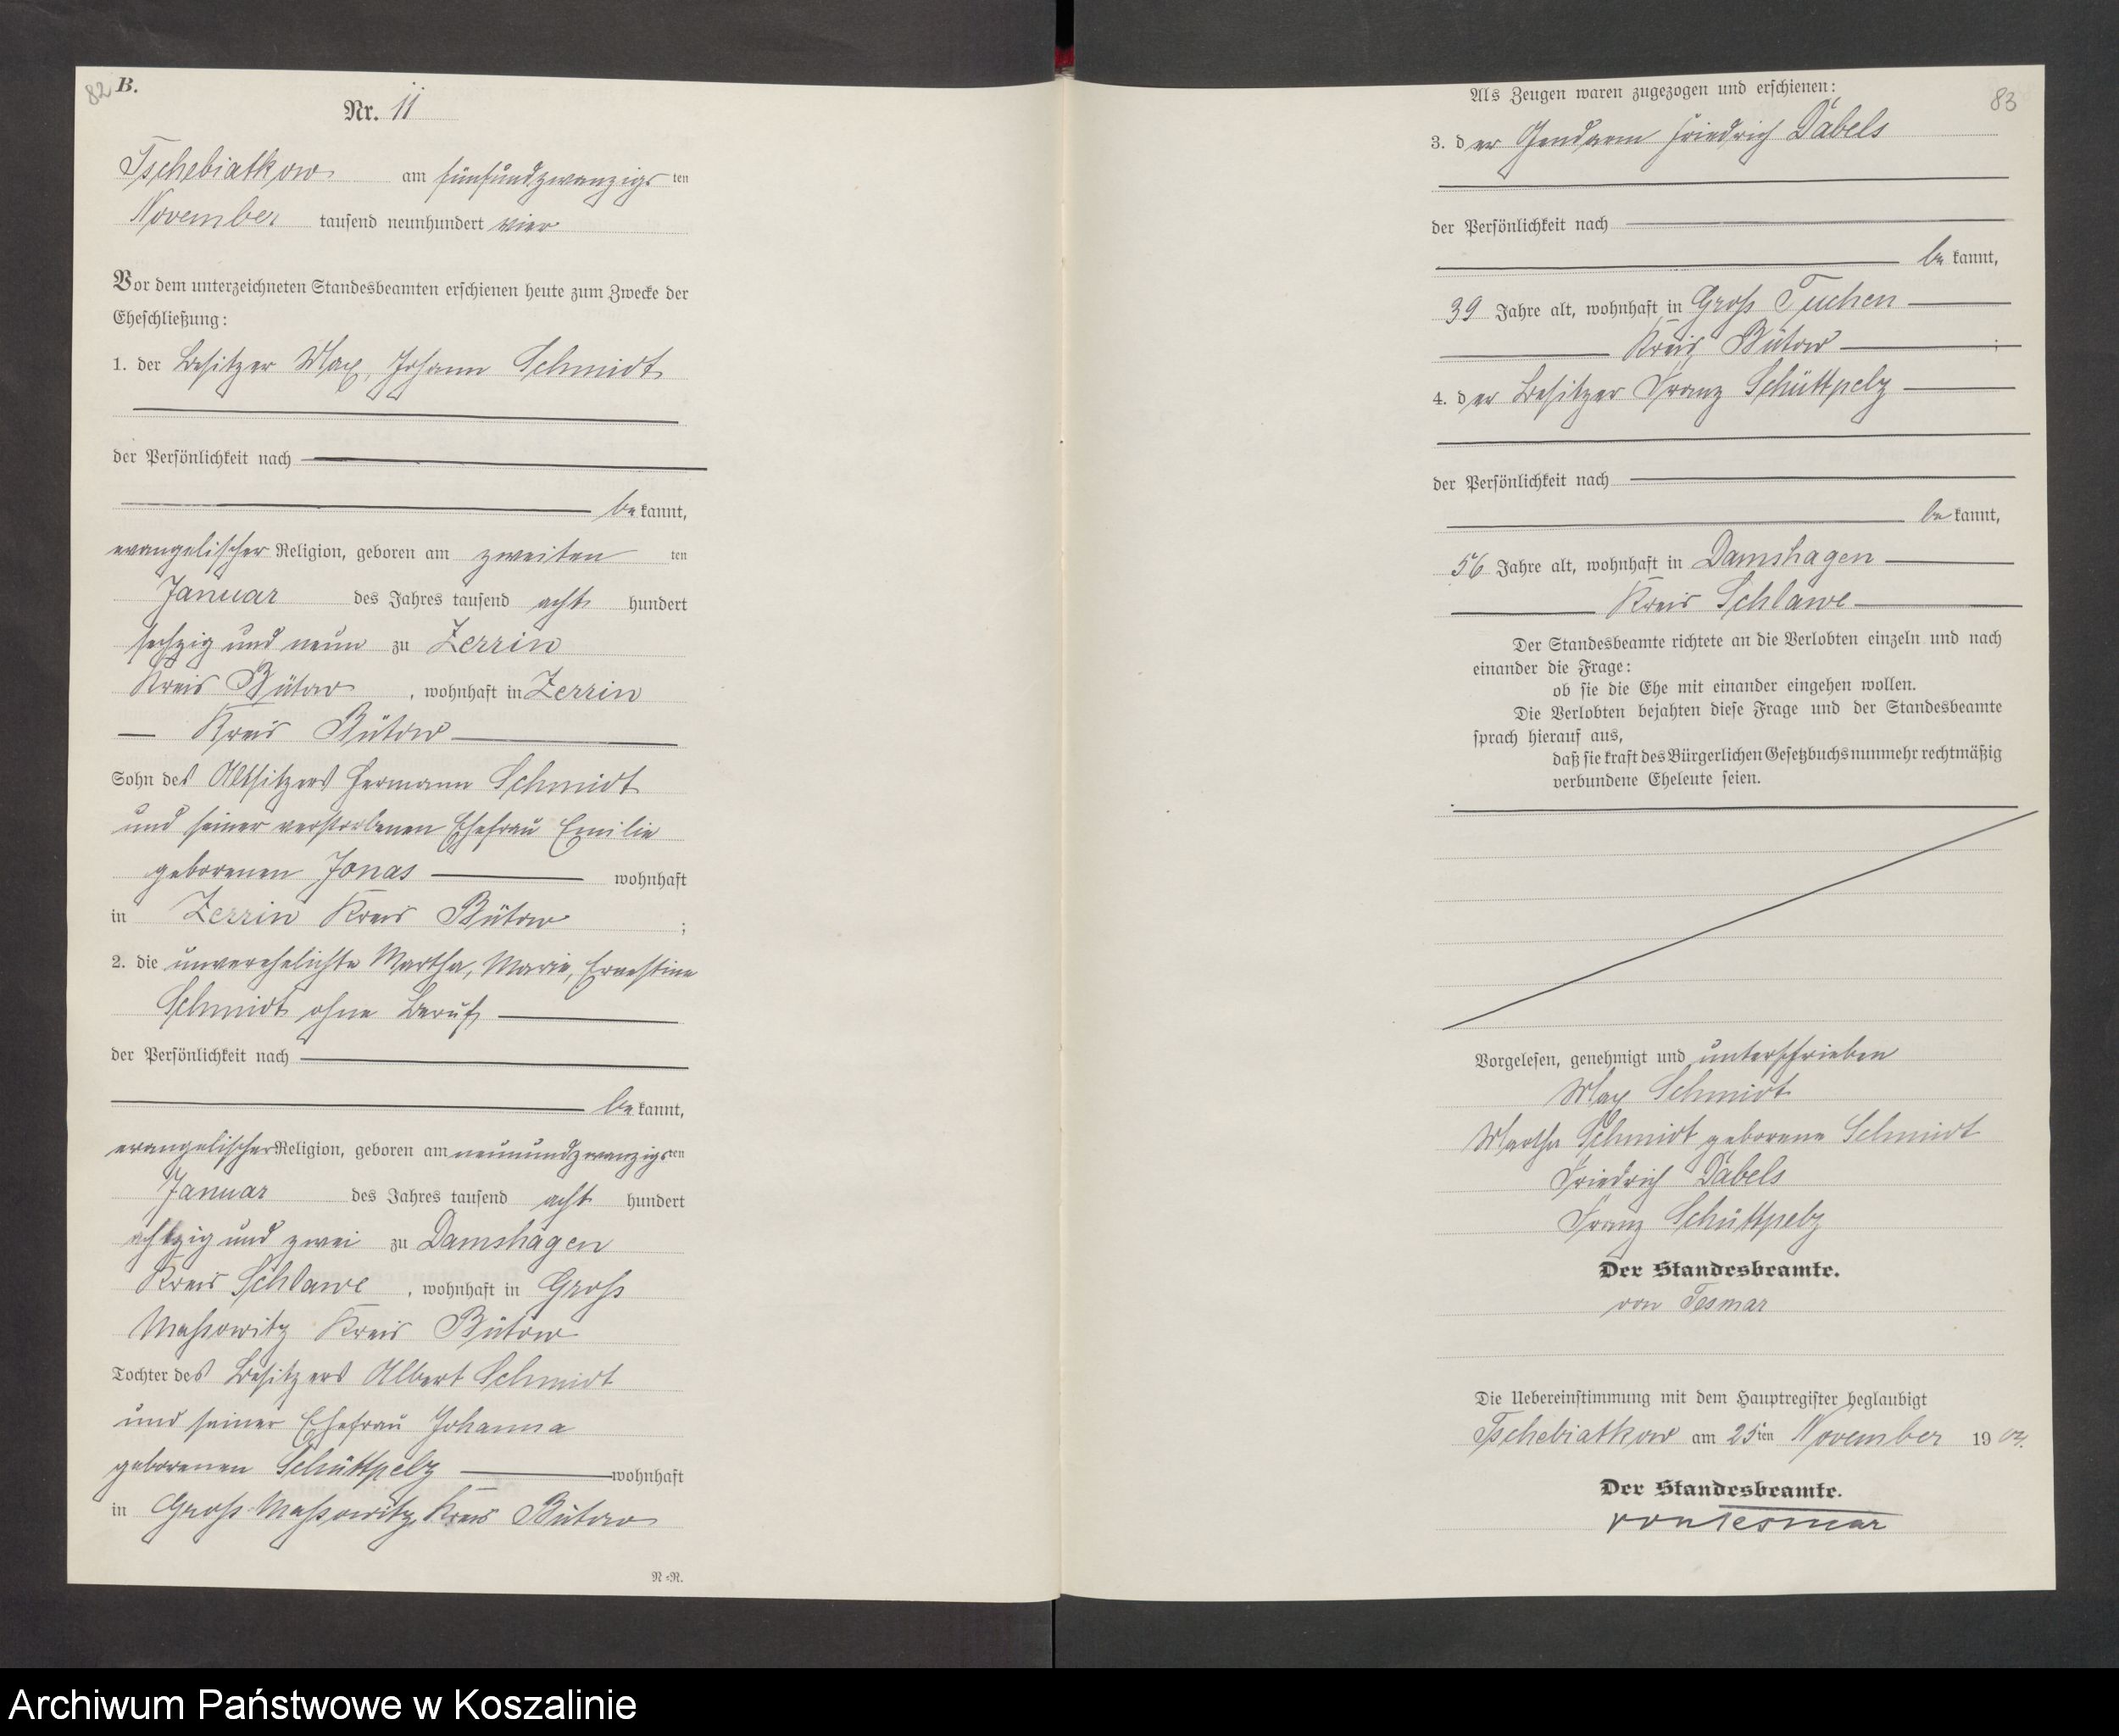 82 B.
Nr. 11
Tschebiatkow am fünfundzwanzigsten
November tausend neunhundert vier
Vor dem unterzeichneten Standesbeamten erschienen heute zum Zwecke der
Eheschließung:
1. der Besitzer Max, Johann Schmidt
der Persönlichkeit nach
be kannt,
evangelischer Religion, geboren am zweiten ten
Januar des Jahres tausend acht hundert
sechzig und neun zu Zerrin
Kreis Bütow, wohnhaft in Zerrin
Kreis Bütow
Sohn des Altsitzers Hermann Schmidt
und seiner verstorbenen Ehefrau Emilie
geborenen Jonas wohnhaft
in Zerrin Kreis Bütow ;
2. die unverehelichte Martha, Marie, Ernestine
Schmidt ohne Beruf
der Persönlichkeit nach
be kannt,
evangelischer Religion, geboren am neunundzwanzigsten
Januar des Jahres tausend acht hundert
achtzig und zwei zu Damshagen
Kreis Schlawe, wohnhaft in Gross
Massowitz Kreis Bütow
Tochter des Besitzers Albert Schmidt
und seiner Ehefrau Johanna
geborenen Schüttpelz wohnhaft
in Gross-Massowitz, Kreis Bütow
N-R.
83
Als Zeugen waren zugezogen und erschienen:
3. der Gendarm Friedrich Däbels
der Persönlichkeit nach
be kannt,
39 Jahre alt, wohnhaft in Gross Tuchen
Kreis Bütow ;
4. der Besitzer Franz Schüttpelz
der Persönlichkeit nach
be kannt,
56 Jahre alt, wohnhaft in Damshagen
Kreis Schlawe
Der Standesbeamte richtete an die Verlobten einzeln und nach
einander die Frage:
ob sie die Ehe mit einander eingehen wollen.
Die Verlobten bejahten diese Frage und der Standesbeamte
sprach hierauf aus,
daß sie kraft des Bürgerlichen Gesetzbuchs nunmehr rechtmäßig
verbundene Eheleute seien.
Vorgelesen, genehmigt und unterschrieben
Max Schmidt
Martha Schmidt geborene Schmidt
Friedrich Däbels
Franz Schüttpelz
Der Standesbeamte.
von Tesmar
Die Uebereinstimmung mit dem Hauptregister beglaubigt
Tschebiatkow am 25ten November 19 04.
Der Standesbeamte.
von Tesmar
Archiwum Państwowe w Koszalinie